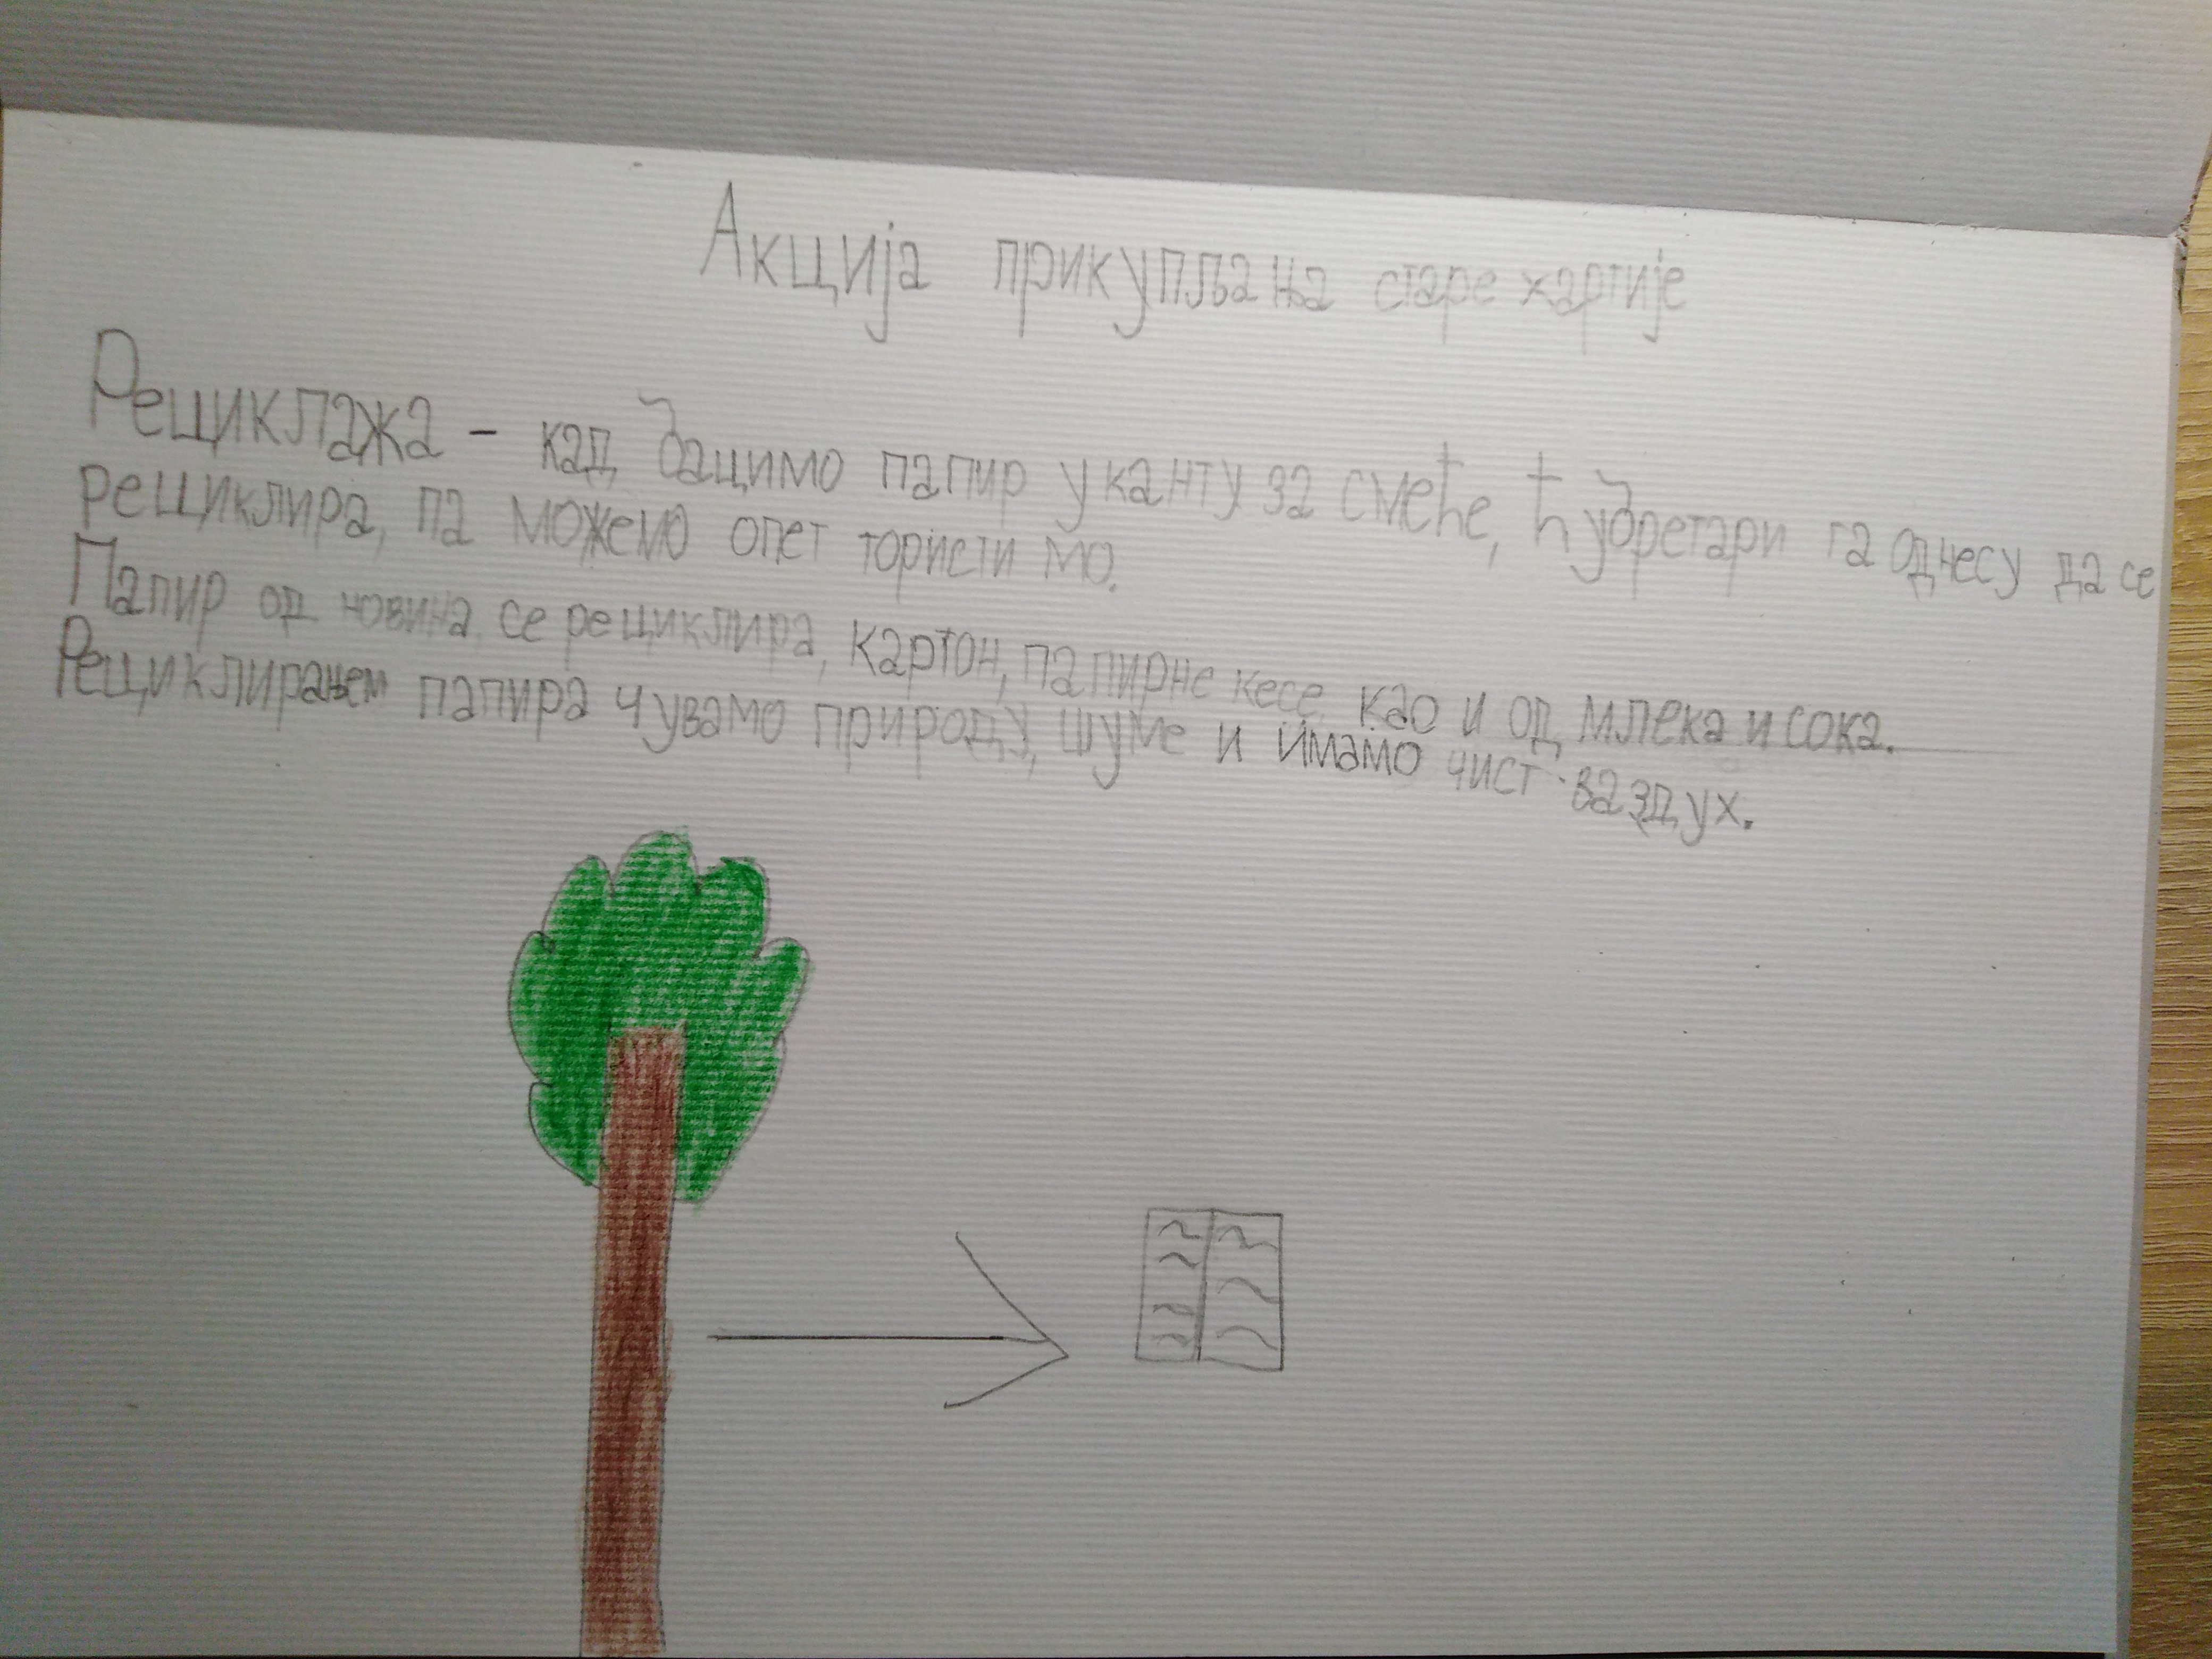 Акција прикупљања старе хартије
Рециклажа - кад бацимо папир у канту за смеће, ћубретари га однесу да се
рециклира, па можемо опет тористи мо.
Папир од новина се рециклира, картон, папирне кесе као и од млека и сока.
Рециклирањем папира чувамо природу, шуме и имамо чист ваздух.